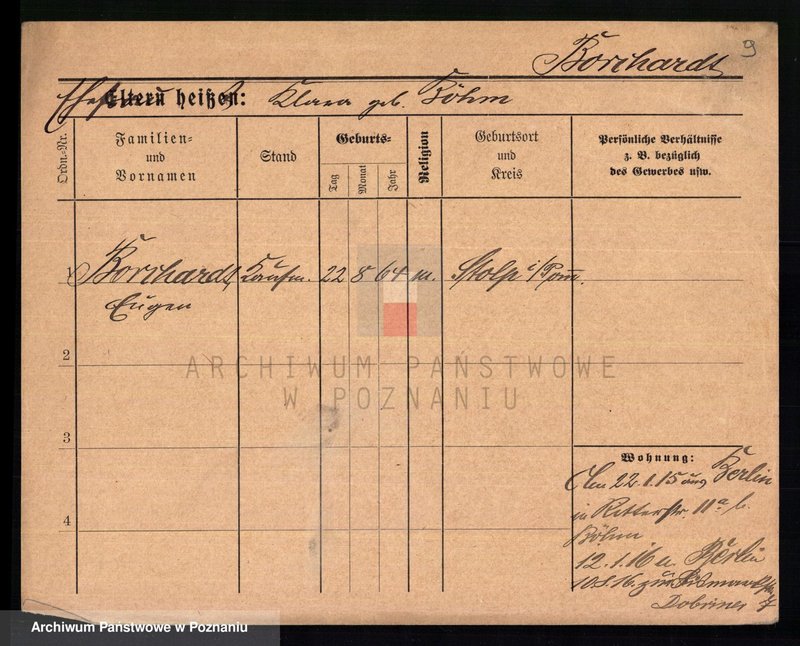 9
Borchardt
Ehefr. Eltern heißen: Klara geb. Böhm
Ordn.-Nr.
Familien- und Vornamen
Stand
Geburts-
Tag
Monat
Jahr
Religion
Geburtsort und Kreis
Persönliche Verhältnisse z. B. bezüglich des Gewerbes usw.
1 Borchardt, Kaufm. 22 8 64 m. Stolp i/Pom.
Eugen
2
ARCHIWUM PAŃSTWOWE
W POZNANIU
3
4
Wohnung:
Am 22.1.15 aus Berlin
n Ritterstr. 11a b.
Böhm
12.1.16 n. Berlin
10.8.16 zur. Bismarckstr. 7
Archiwum Państwowe w Poznaniu